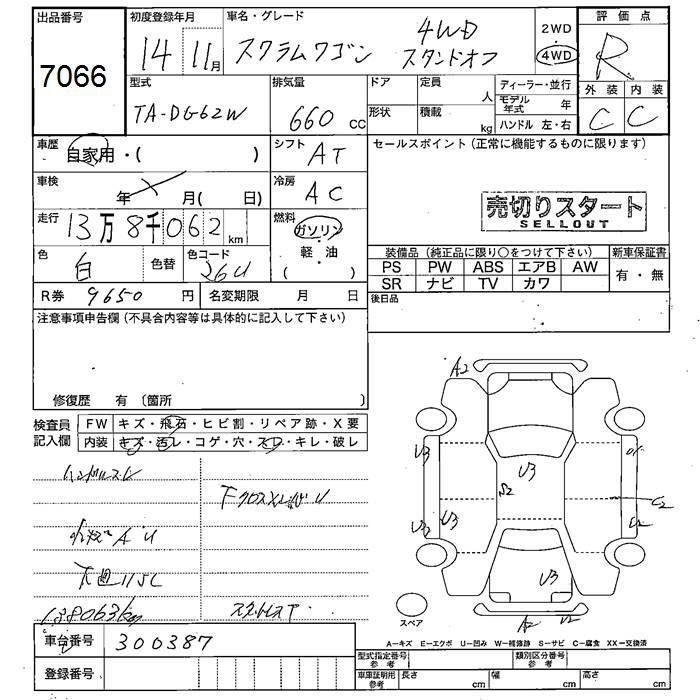 出品番号
7066
初度登録年月
14 11月
車名・グレード
スクラムワゴン 4WD スタンドオフ
2WD
4WD
評価点
R
外装 内装
C C
型式
TA-DG62W
排気量
660 cc
ドア
形状
定員
人
積載
kg
ディーラー・並行
モデル年式 年
ハンドル 左・右
車歴
自家用・( )
シフト
AT
セールスポイント (正常に機能するものに限ります)
車検
年 月( 日)
冷房
AC
売切りスタート
SELLOUT
走行
13万8千062 km
燃料
ガソリン
軽・油
( )
色
白
色替
色コード
26U
装備品 (純正品に限り〇をつけて下さい)
新車保証書
PS PW ABS エアB AW
有・無
SR ナビ TV カワ
R券 9650 円
名変期限 月 日
後日品
注意事項申告欄 (不具合内容等は具体的に記入して下さい)
修復歴 有 (箇所 )
検査員
記入欄
FW キズ・飛石・ヒビ割・リペア跡・X要
内装 キズ・汚レ・コゲ・穴・スレ・キレ・破レ
ハンドルスレ
138063km
A2
U3
U3
S2
C2
U2
U3
U3
A2
U2
スペア
A-キズ E-エクボ U-凹み W-補修跡 S-サビ C-腐食 XX-交換済
車台番号 300387
登録番号
型式指定番号
参考
類別区分番号
参考
車庫証明用
参考
長さ cm
幅 cm
高さ cm